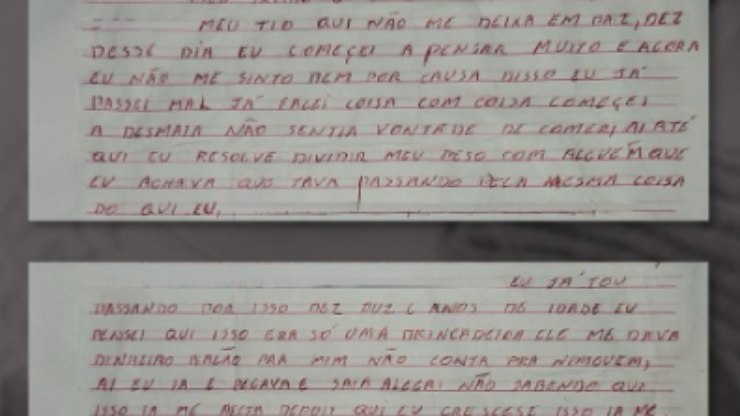 MEU TIO QUI NÃO ME DEIXA EM PAZ, DEZ
DESSE DIA EU COMEÇEI A PENSAR MUITO E AGORA
EU NÃO ME SINTO BEM POR CAUSA DISSO EU JÁ
PASSEI MAL JÁ FALEI COISA COM COISA COMEÇEI
A DESMAIA NÃO SENTIA VONTADE DE COMER, AI ATÉ
QUI EU RESOLVE DIVIDIR MEU PESO COM ALGUÉM QUE
EU ACHAVA QUO TAVA PASSANDO PELA MESMA COISA
DO QUI EU,
EU JÁ TOU
PASSANDO POR ISSO DEZ DUZ 6 ANOS DE IDADE EU
PENSEI QUI ISSO ERA SÓ UMA BRINCADEIRA ELE ME DAVA
DINHEIRO BALÃO PRA MIM NÃO CONTA PRA NINGUEM,
AI EU IA E PEGAVA E SAIA ALEGRI NÃO SABENDO QUI
ISSO IA ME AFETA DEPOIS QUI EU CRESCESE ISSO IA ME